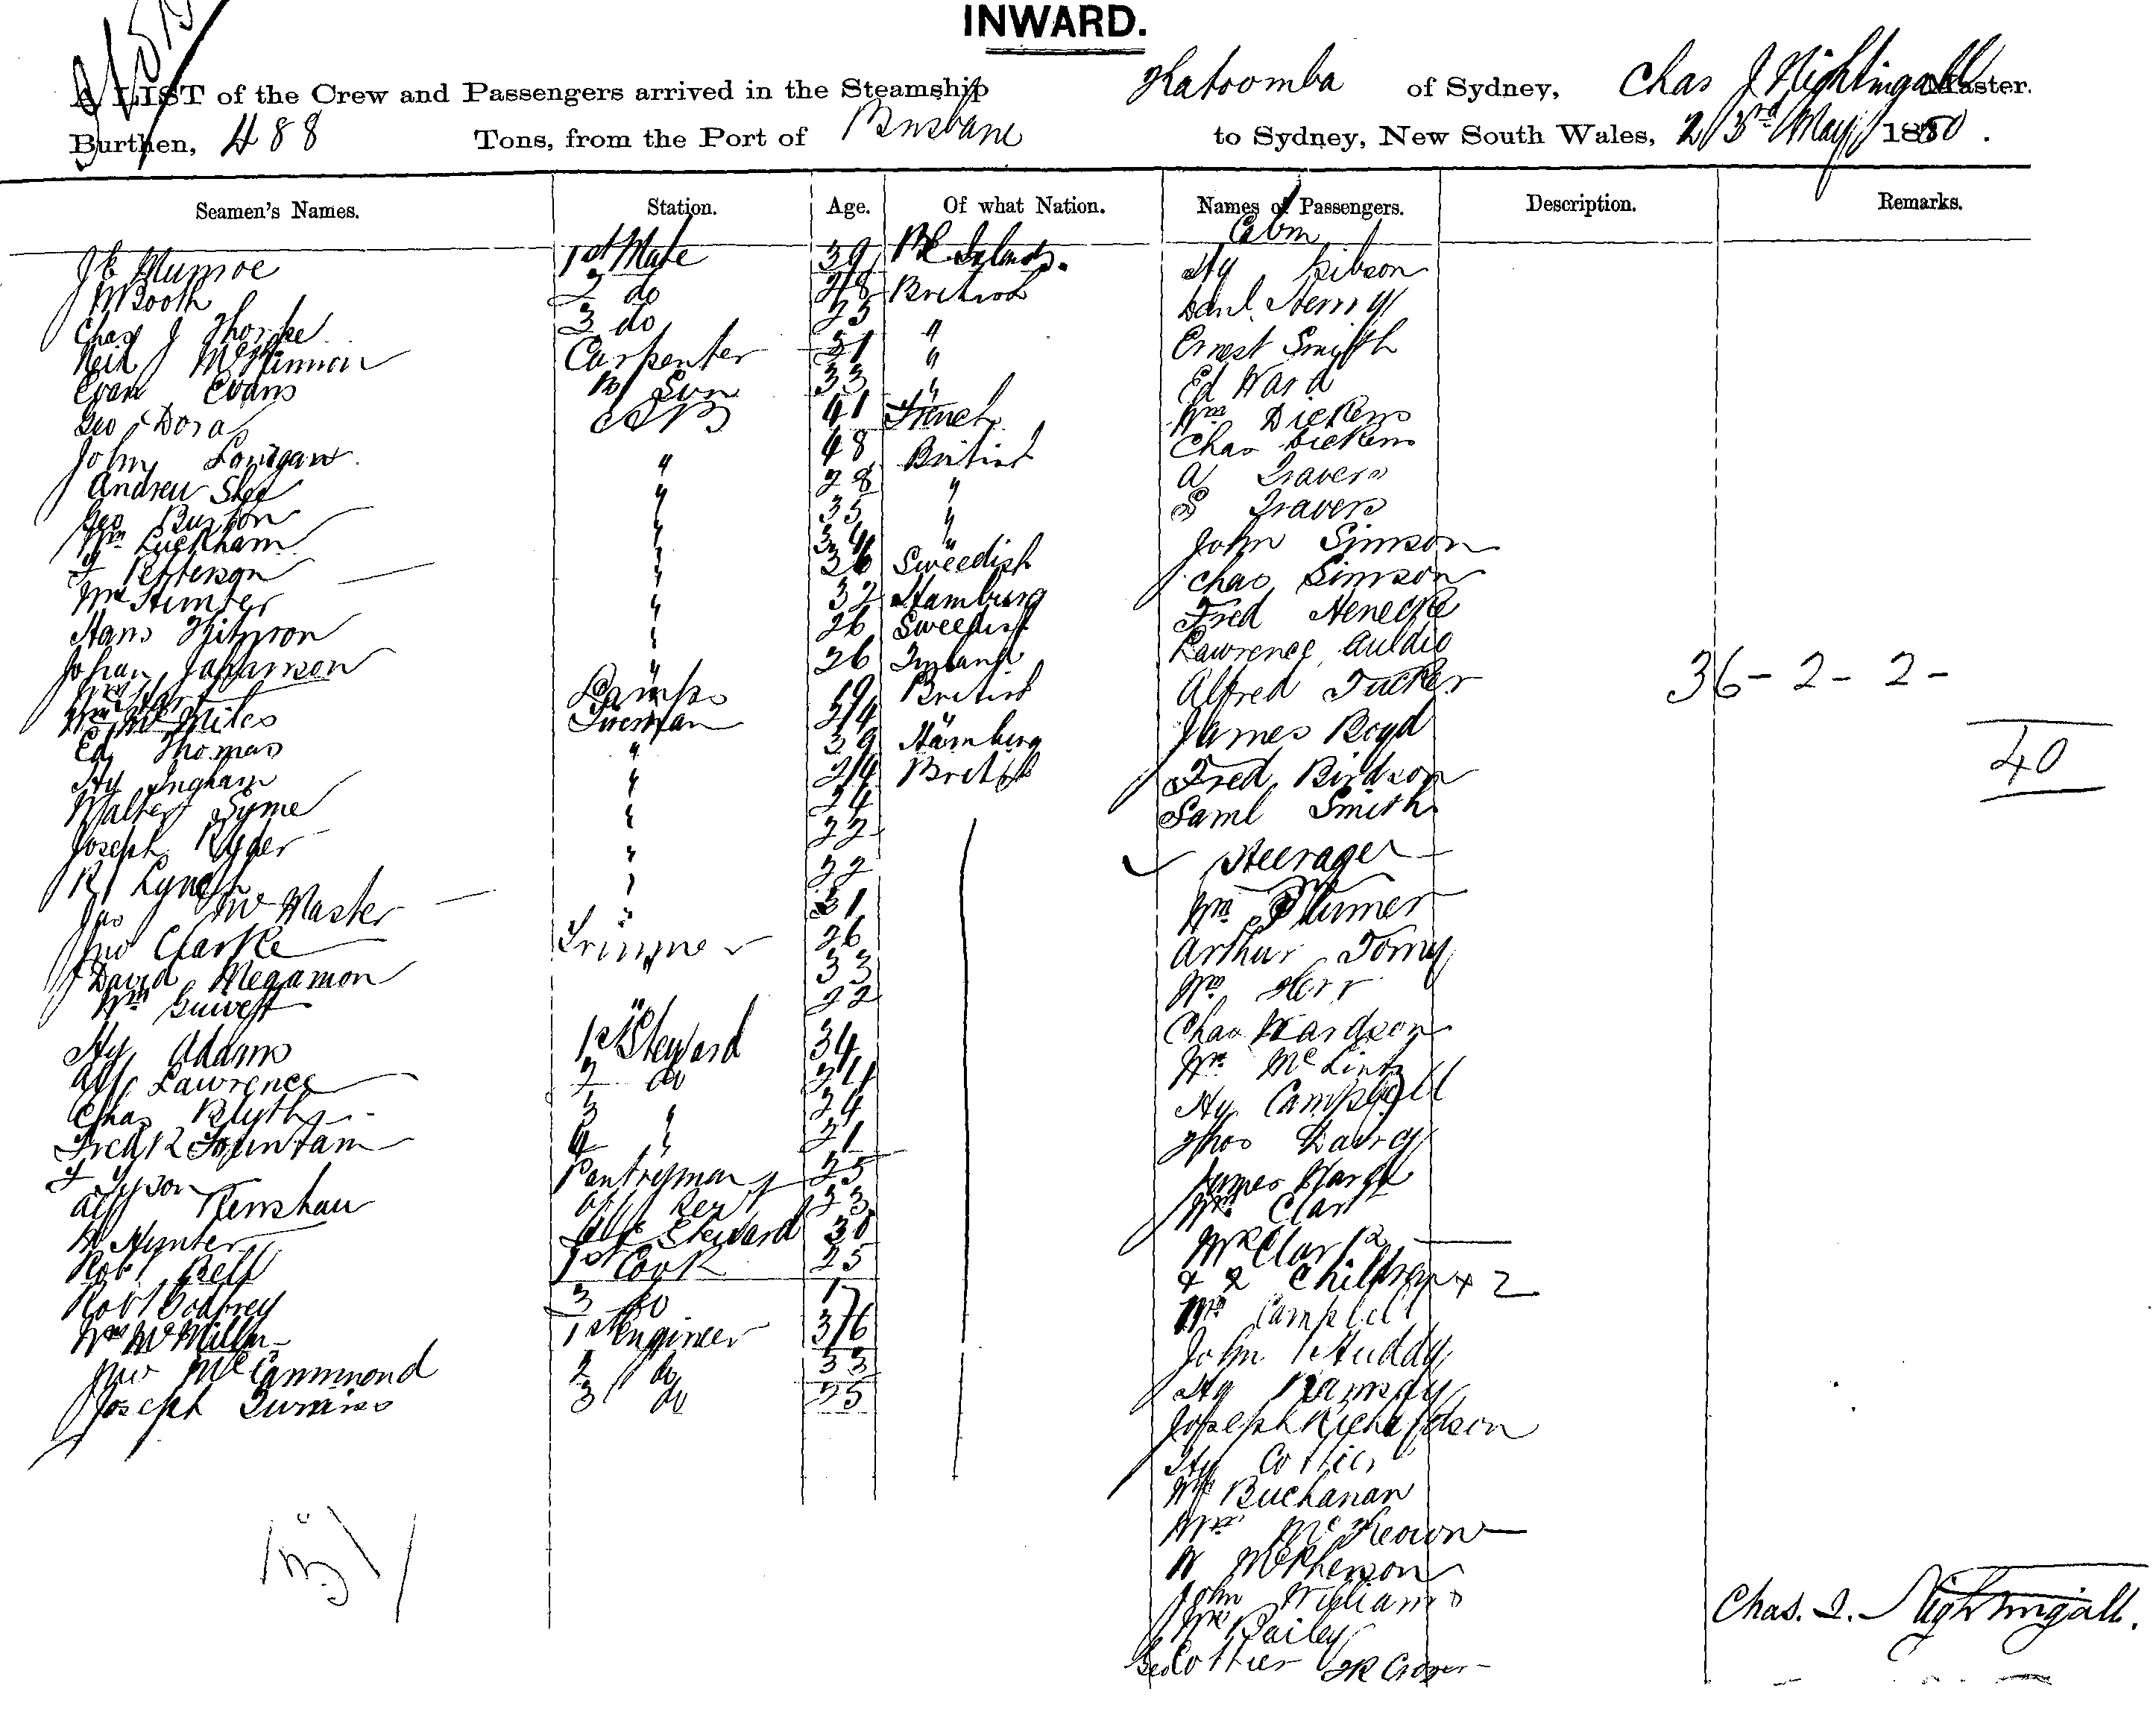 INWARD.
A LIST of the Crew and Passengers arrived in the Steamship Katoomba of Sydney, Chas J Nightingall Master.
Burthen, 488 Tons, from the Port of Brisbane to Sydney, New South Wales, 23rd May 1880.
Seamen's Names. Station. Age. Of what Nation. Names of Passengers. Description. Remarks.
Cabin
J E Munroe 1st Mate 39 Hy Gibson
J Booth 2 do 28 British Danl. Henry
Chas J Thorpe 3 do 25 " Ernest Smith
Neil McKinnon Carpenter 51 " Ed Ward
Evan Evans 33 " Wm Dickens
Geo Dora AB 41 French Chas Dickens
John 48 British A Travers
Andrew 28 " S Travers
Geo Burton " 35 " John Simson
Wm Luckham " 34 " Chas Simson
Petterson " 36 Sweedish Fred Henecke
Wm Hunter " 32 Hamburg Lawrence Auldio
Hans " 26 Sweedish Alfred Tucker
Johan Johanson " 26 James Boyd
36 - 2 - 2 -
40
Lamps 19 British Fred Birdson
Miles Fireman 24 Saml Smith
Ed Thomas " 39 Hamburg
Hy Ingham " 24 British
Walter Syme " 24 Steerage
Joseph Ryder " 22 Wm Plumer
R Lynch " 22 Arthur Torny
Jas McMaster " 31 Wm Kerr
Jno Clarke Trimmer 26 Chas Wardson
David Megamon " 33 Wm
Wm " 22 Hy Campbell
Hy Adams 1st Steward 34 Thos
Alf Lawrence 2 do 24 James
Chas Blyth 3 " 24 Wm Clark
Fredk Fountain 4 " 21 Mrs Clark
Tyson Pantryman 25 & 2 Children + 2
Alf Renshaw 23 Campbell
Hunter Steward 30 John Huddy
Robt Bell 1st Cook 25 Hy Ramsay
Robt Godfrey 3 do 17 Joseph Richardson
Wm McMillan 1st Engineer 36 Hy Cottier
Jno McCammond 2 do 33 Buchanan
Joseph 3 do 25 McKeown
W McPherson
John Williams
Bailey
Geo Cottier
Chas. J. Nightingall.